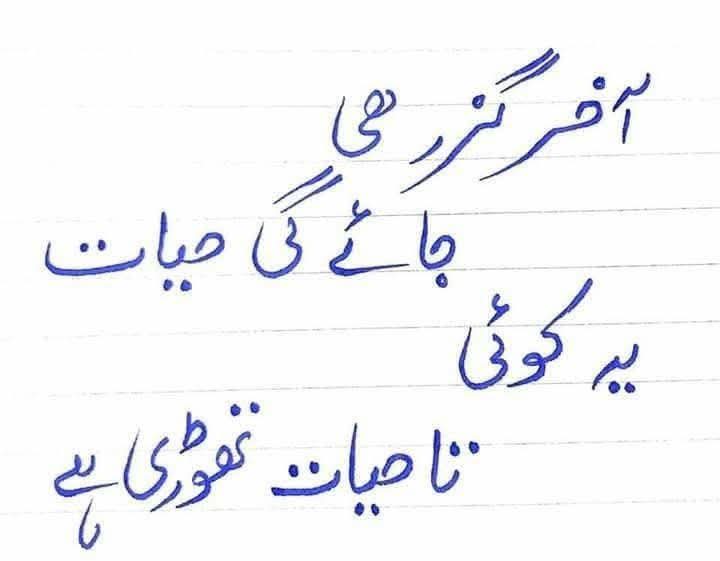 آخر گزر ھی
جائے گی حیات
یہ کوئی
تا حیات تھوڑی ہے